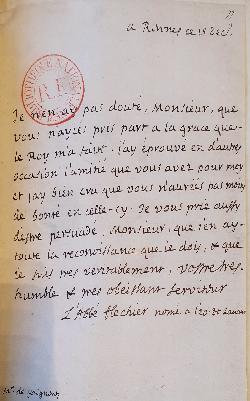 a Rennes ce 18 Dec.
Je n'en ay pas douté, Monsieur, que
vous n'ayés pris part a la grace que
le Roy m'a faite. J'ay éprouvé en d'autres
occasion l'amitié que vous avez pour moy
et j'ay bien cru que vous n'auriés pas moins
de bonté en celle-cy. Je vous prie aussy
d'estre persuadé, Monsieur, que j'en ay
toute la reconoissance que je dois, & que
je suis tres veritablement, Vostre tres
humble & tres obeissant serviteur
L'Abbé Flechier nomé a l'ev. de Lavaur